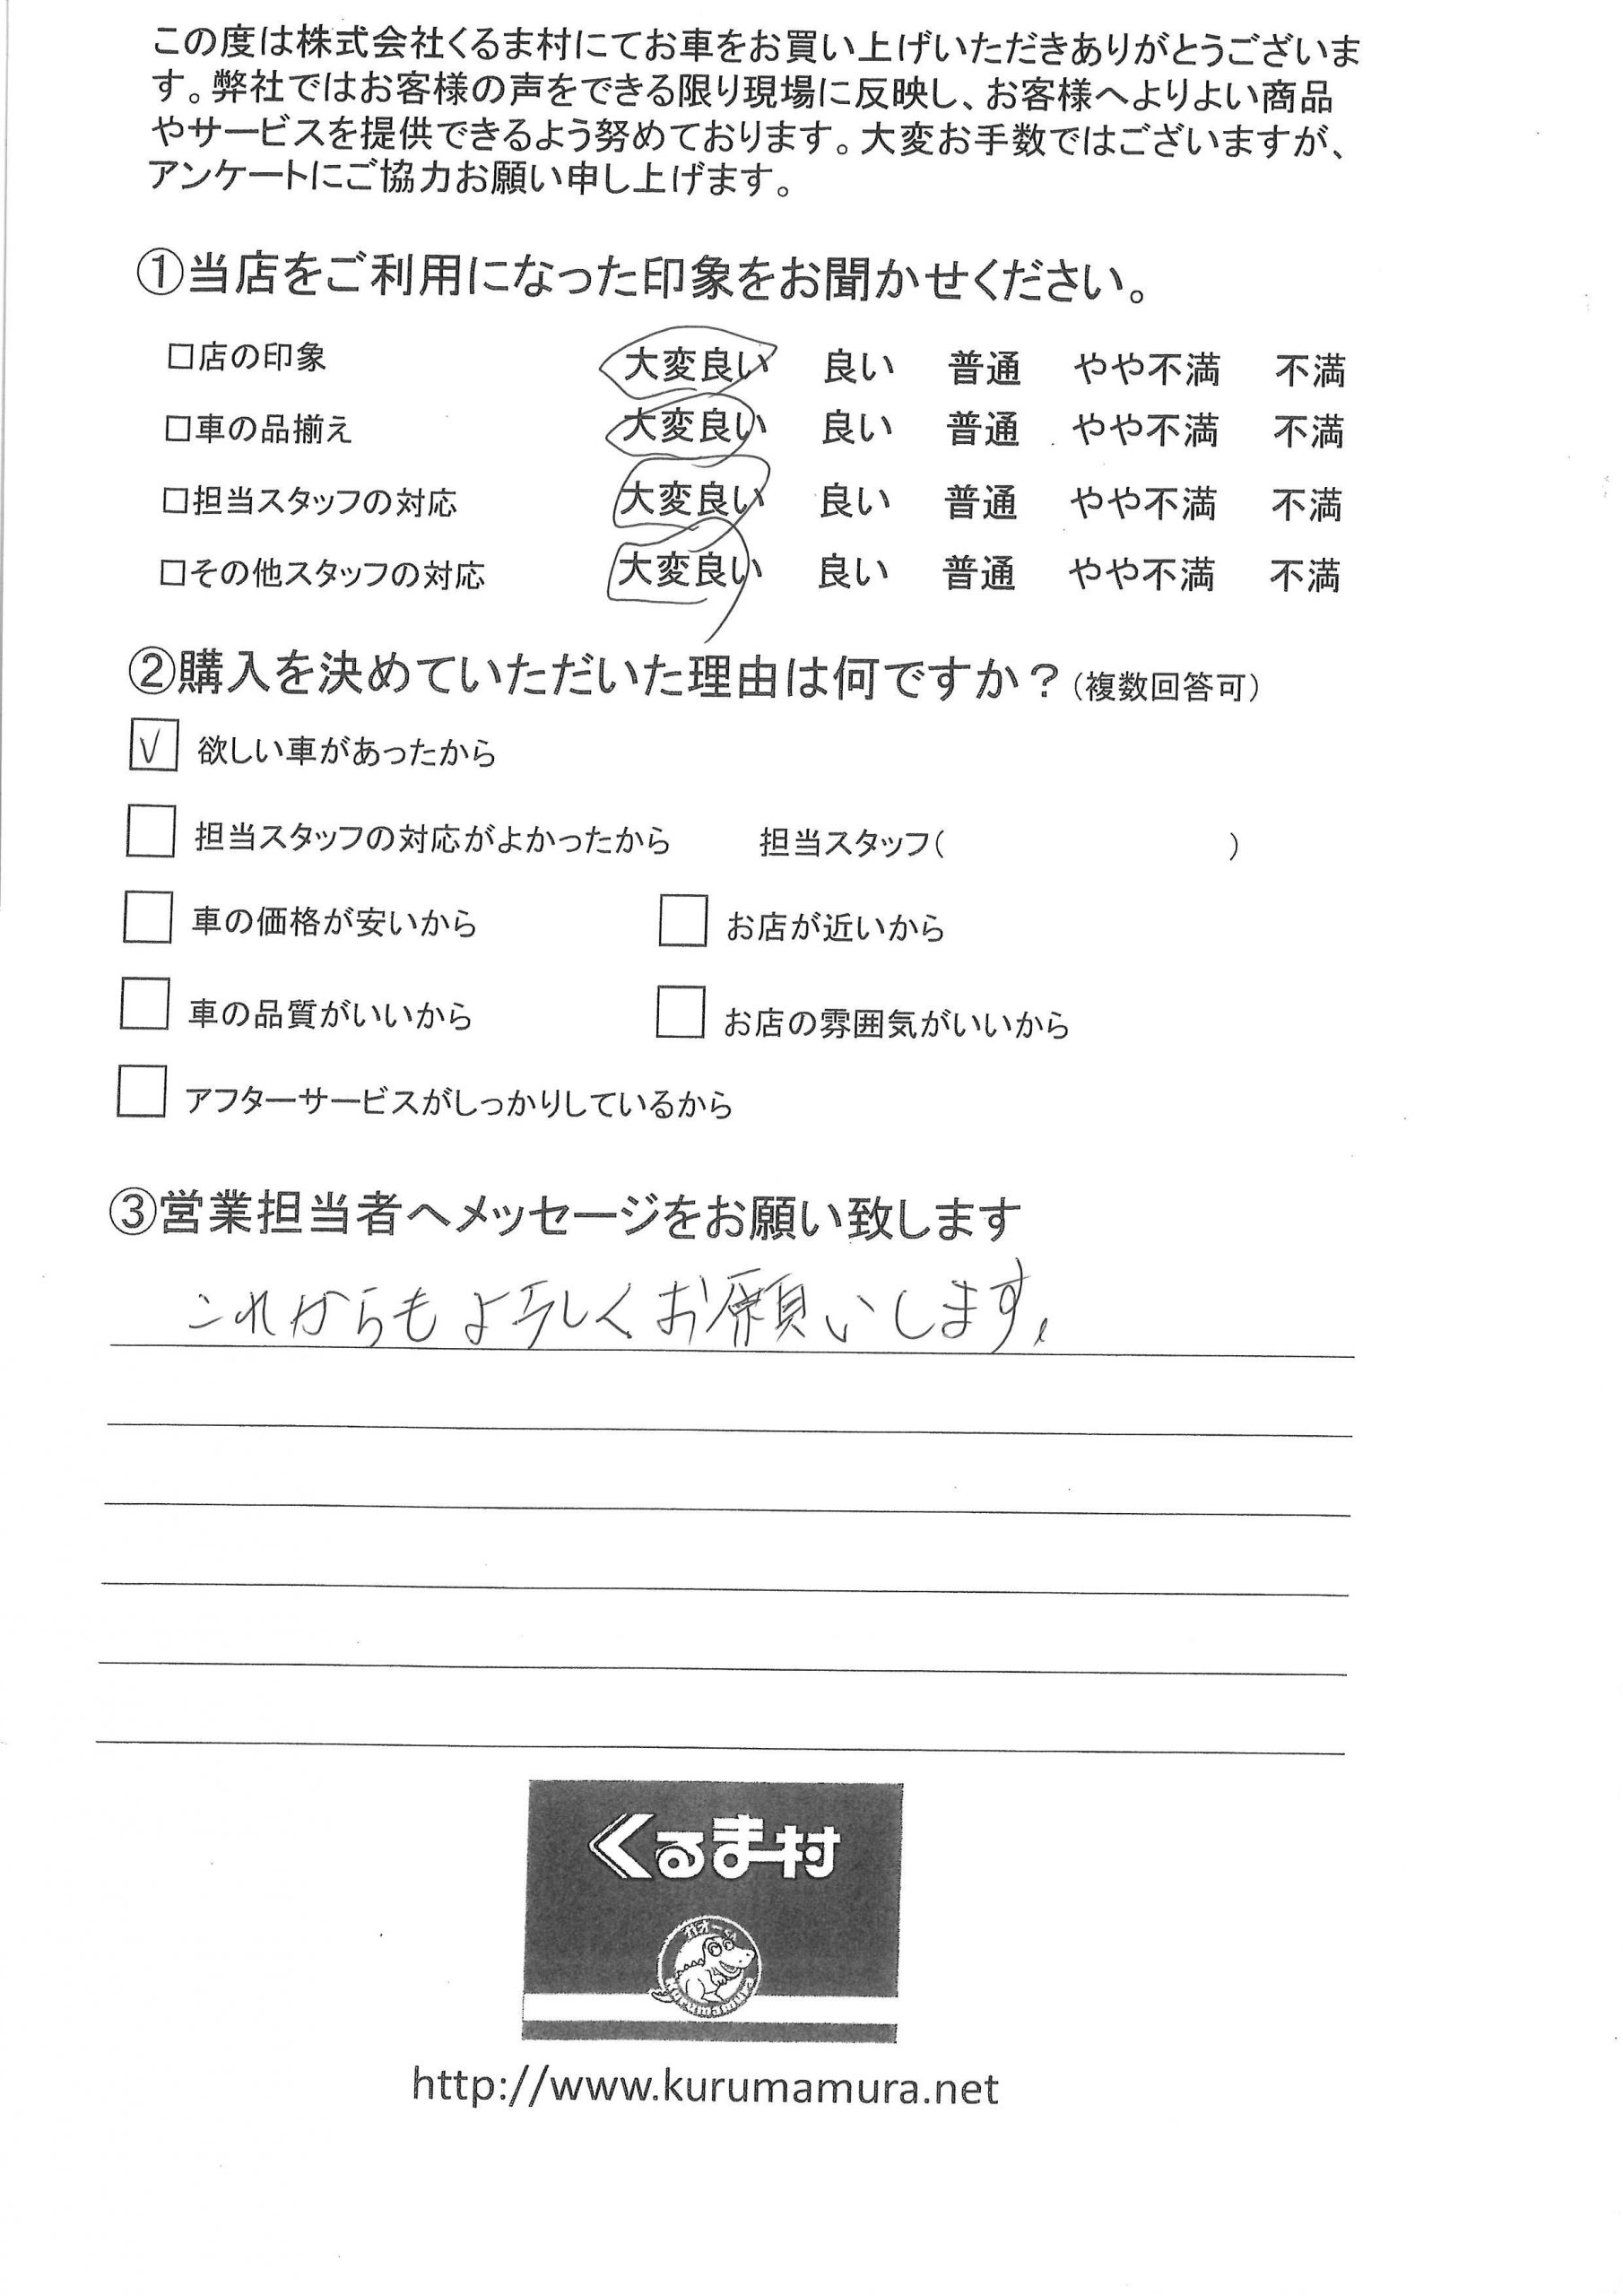 この度は株式会社くるま村にてお車をお買い上げいただきありがとうございま
す。弊社ではお客様の声をできる限り現場に反映し、お客様へよりよい商品
やサービスを提供できるよう努めております。大変お手数ではございますが、
アンケートにご協力お願い申し上げます。
①当店をご利用になった印象をお聞かせください。
□店の印象 大変良い 良い 普通 やや不満 不満
□車の品揃え 大変良い 良い 普通 やや不満 不満
□担当スタッフの対応 大変良い 良い 普通 やや不満 不満
□その他スタッフの対応 大変良い 良い 普通 やや不満 不満
②購入を決めていただいた理由は何ですか？(複数回答可)
☑ 欲しい車があったから
□ 担当スタッフの対応がよかったから 担当スタッフ( )
□ 車の価格が安いから □ お店が近いから
□ 車の品質がいいから □ お店の雰囲気がいいから
□ アフターサービスがしっかりしているから
③営業担当者へメッセージをお願い致します
これからもよろしくお願いします。
くるま村
ガオーッ
kurumamura
http://www.kurumamura.net